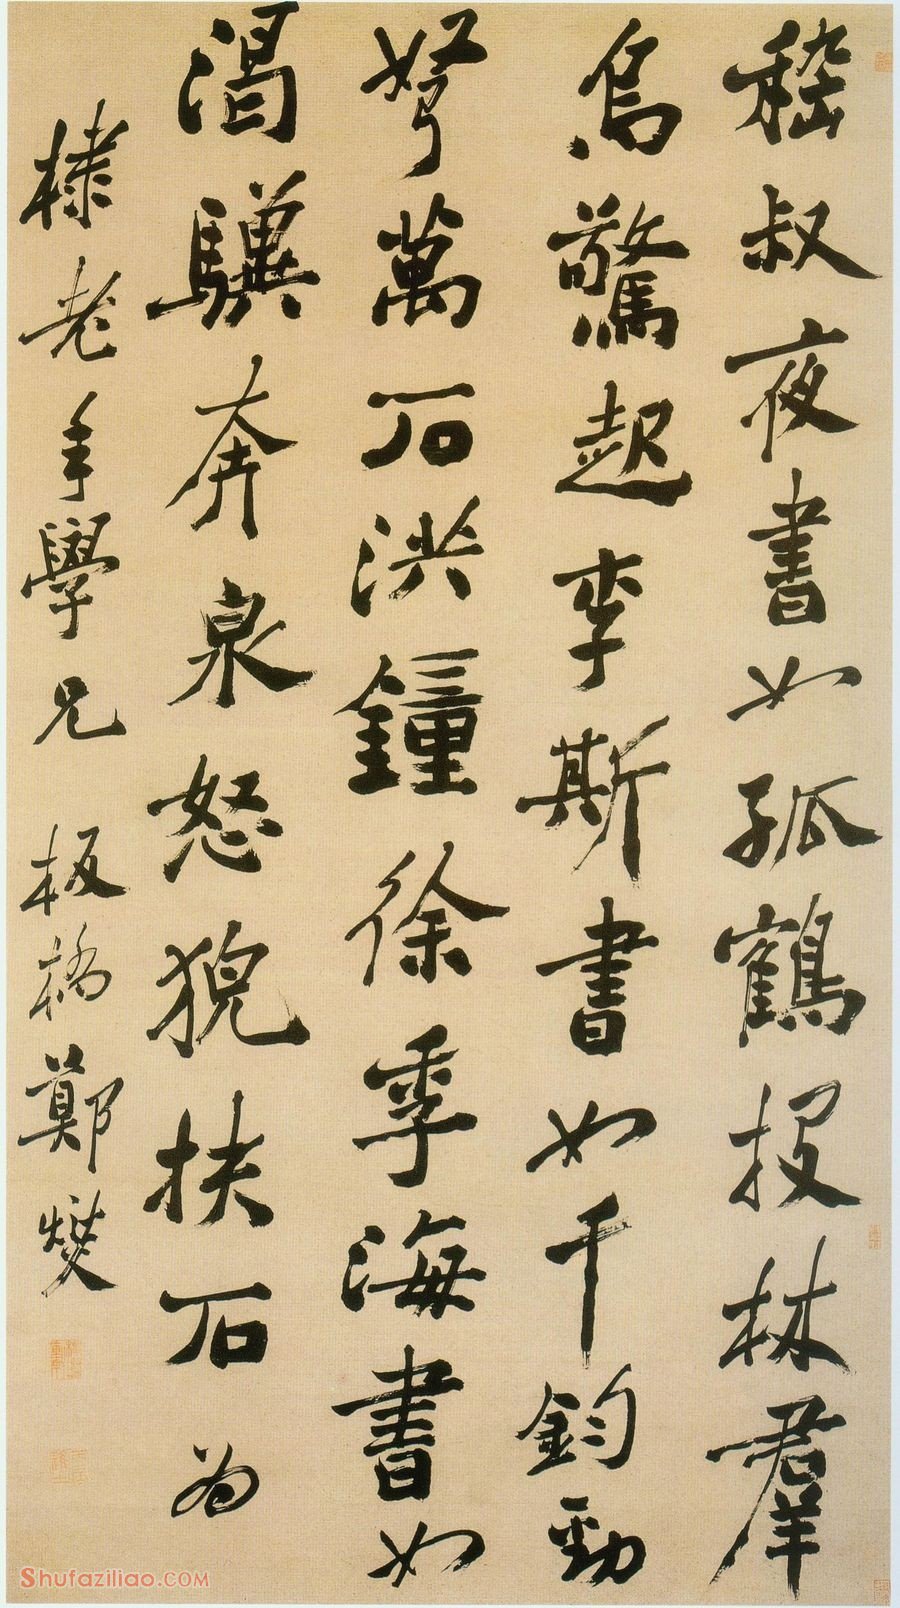 嵇叔夜書如孤鶴投林羣
烏驚起李斯書如千鈞勁
弩萬石洪鐘徐季海書如
渴驥奔泉怒猊抉石为
棣老年學兄 板橋鄭燮
Shufaziliao.com